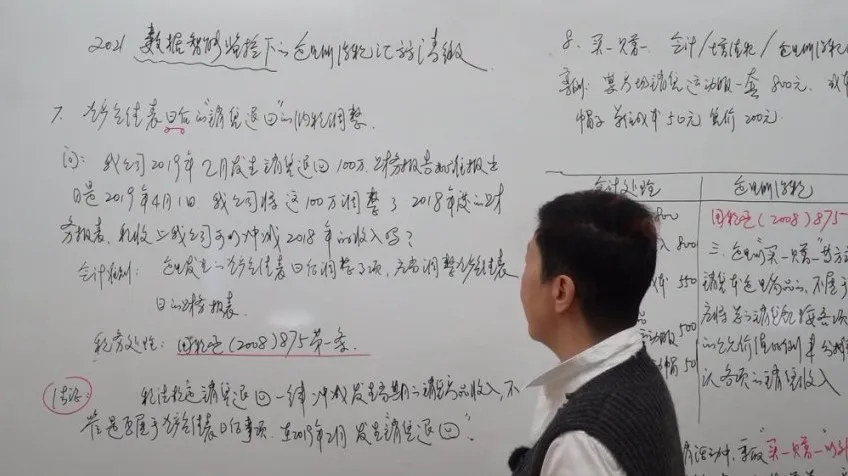 2021 数据智能监控下的企业所得税汇算清缴
7. 资产负债表日后的“销售退回”的纳税调整.
问: 我公司2019年2月发生销售退回100万. 财务报告批准报出
日是2019年4月1日. 我公司将这100万调整了2018年度的财
务报表, 税收上我公司可以冲减2018年的收入吗?
会计准则: 企业发生的资产负债表日后调整事项, 应当调整资产负债表
日的财务报表.
税务处理: 国税函(2008)875第一条.
结论: 税法规定销售退回一律冲减发生当期的销售商品收入, 不
管是否属于资产负债表日后事项. 在2019年2月发生销售退回”.
8. 买一赠一. 会计/增值税/企业所得税
案例: 某商场销售运动服一套 800元,
帽子 单位成本50元 售价200元.
会计处理
800
800
550
500
50
企业所得税
国税函(2008)875
三. 企业“买一赠一”等方式
销售本企业商品的, 不属于
应将总的销售金额按各项
的公允价值的比例来分摊
认各项的销售收入
“买一赠一”